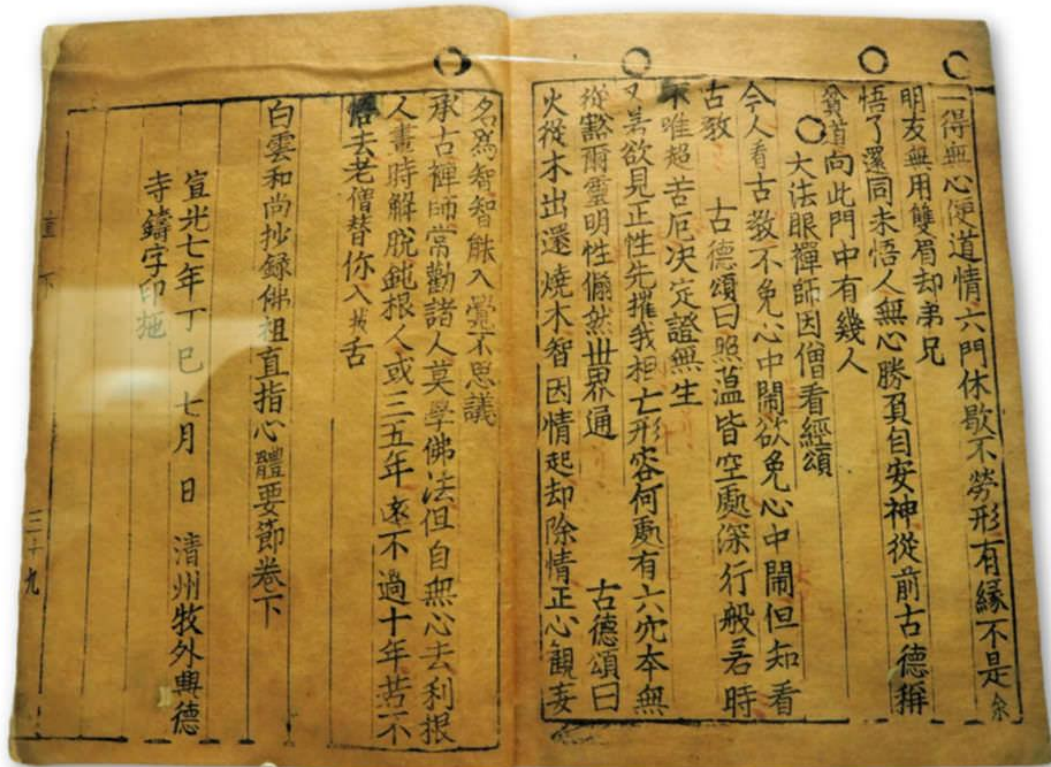 一得無心便道情六門休歇不勞形有縁不是余
明友無用雙眉却弟兄
悟了還同未悟人無心勝負自安神從前古德稱
貧道向此門中有幾人
○大法眼禪師因僧看經頌
今人看古教不免心中鬧欲免心中鬧但知看
古教　古德頌曰照蕰皆空處深行般若時
不唯超苦厄决定證無生
又若欲見正性先摧我相亡形容何處有六穴本無
從豁爾靈明性翛然世界通　古德頌曰
火從木出還燒木智因情起却除情正心觀妄
名爲智智能入覺不思議
承古禪師常勸諸人莫學佛法但自無心去利根
人晝時解脫鈍根人或三五年遠不過十年若不
悟去老僧替你入拔舌
白雲和尚抄録佛祖直指心體要節卷下
宣光七年丁巳七月　日　清州牧外興德
寺鑄字印施
直　下　三十九